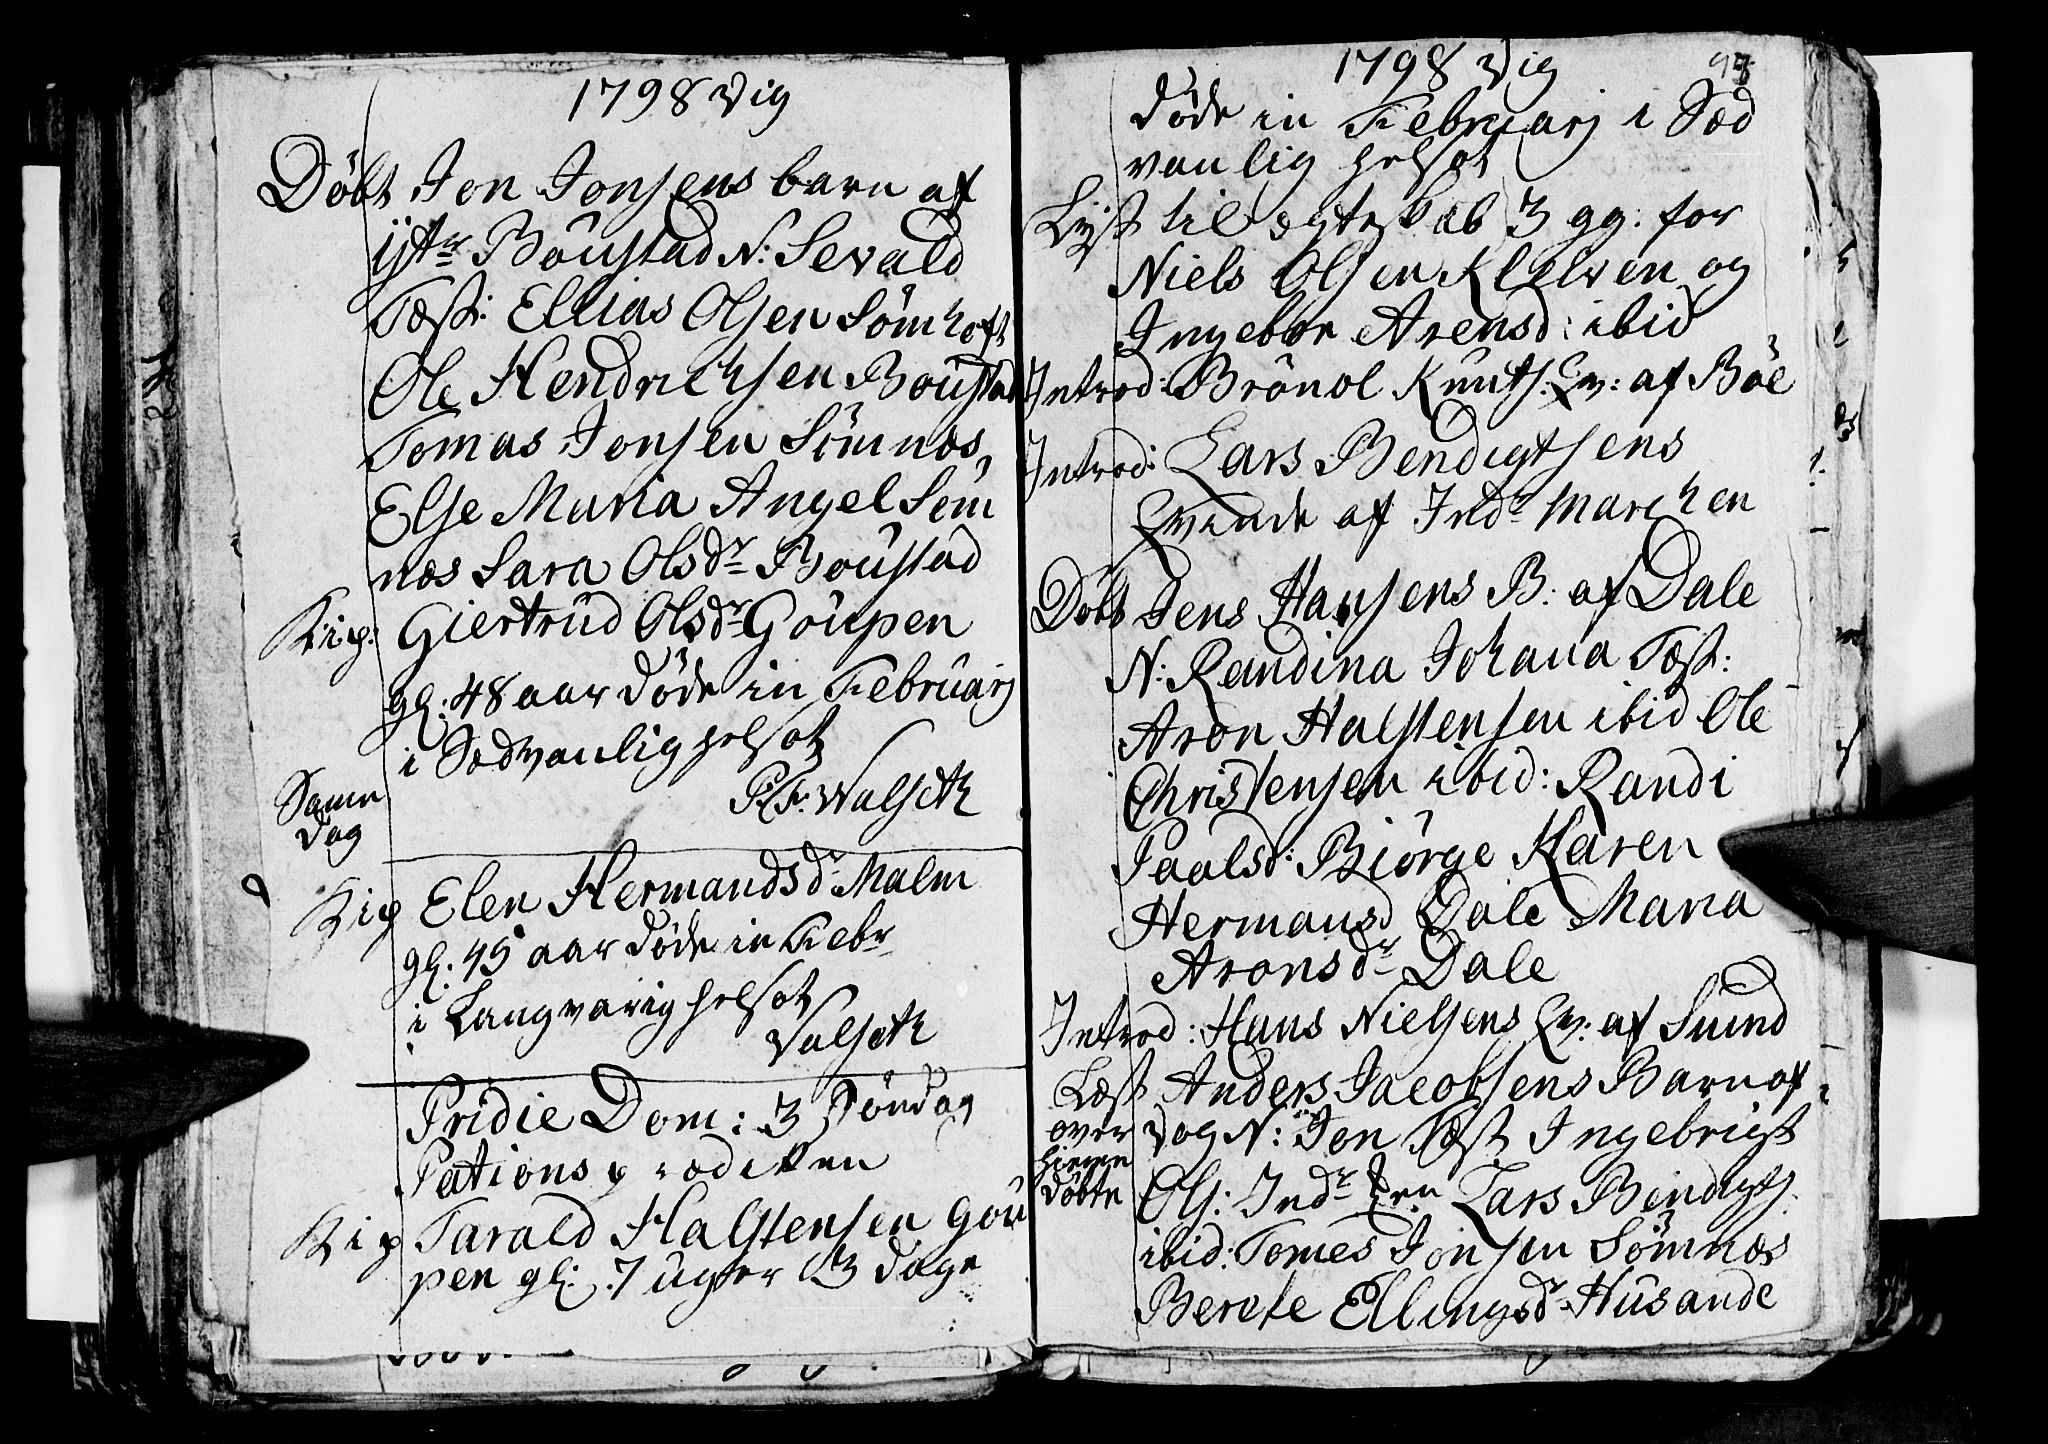 1798 Vig
Döbt Jon Jonsens barn af
ijtr Böustad N: Sevald
Tæst: Ellias Olsen Sömhoft
Ole Hendrichsen Boustad
Tomas Jonsen Sömnæs,
Else Maria Angel Söm
næs Sara Olsdr Boustad
Kip: Giertrud Olsdr Goupen
gl: 48 aar døde in Februarj
i Sædvanlig helsot
P.F. Walseth
Samme
dag
Kip Elen Hermandsdr Malm
gl. 45 aar døde in Febr
i Langvarig helsot
Valseth
Pridie Dom: 3 Söndag
Pations prædiken
Kip Tarald Halstensen Gou
pen gl: 7 uger 3 dage
1798 Vig
døde in Februarj i Sæd
vanlig helsot
Lyst til ægteskab 3 gg: for
Niels Olsen Klelven og
Ingebor Arensd: ibid
Introd: Brönol Knuts. Qv: af Böe
Introd: Lars Bendigtsens
Qvinde af Indr Marchen
Döbt Jens Hansens B: af Dale
N: Randina Johana Tæst:
Aron Halstensen ibid Ole
Christensen ibid: Randi
Paalsd: Biörge Karen
Hermansd Dale Maria
Aronsdr Dale
Introd: Hans Nielsens Qv: af Sund
Læst Anders Jacobsens Barn af
over Vog N: Jon Tæst Ingebrigt
hieme
döbte Ols: Indr Lars Bendigts.
ibid: Tomes Jonsen Sömnæs
Berete Ellingsdr Husande